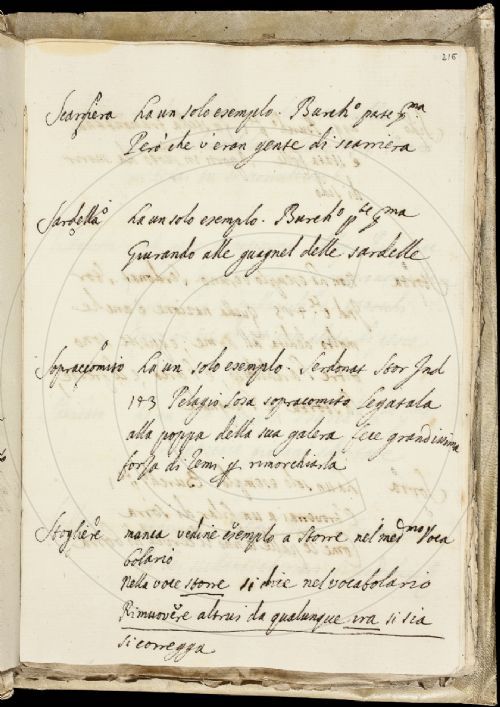 216
Scarriera ha un solo esempio. Burch.º parte pª
Però che v'eran gente di scarriera
Sardella ha un solo esempio. Burch.º pte pª
Giurando alle guagnel delle sardelle
Sopraccomito ha un solo esempio. Serdonat Stor Ind
183 Pelagio Sosa sopracomito legatala
alla poppa della sua galera fece grandissima
forza di remi p rimorchiarla
Stogliere manca vedine esempio a Storre nel medmo Voca
bolario
Nella voce storre si dice nel vocabolario
Rimuovere altrui da qualunque ira si sia
si corregga